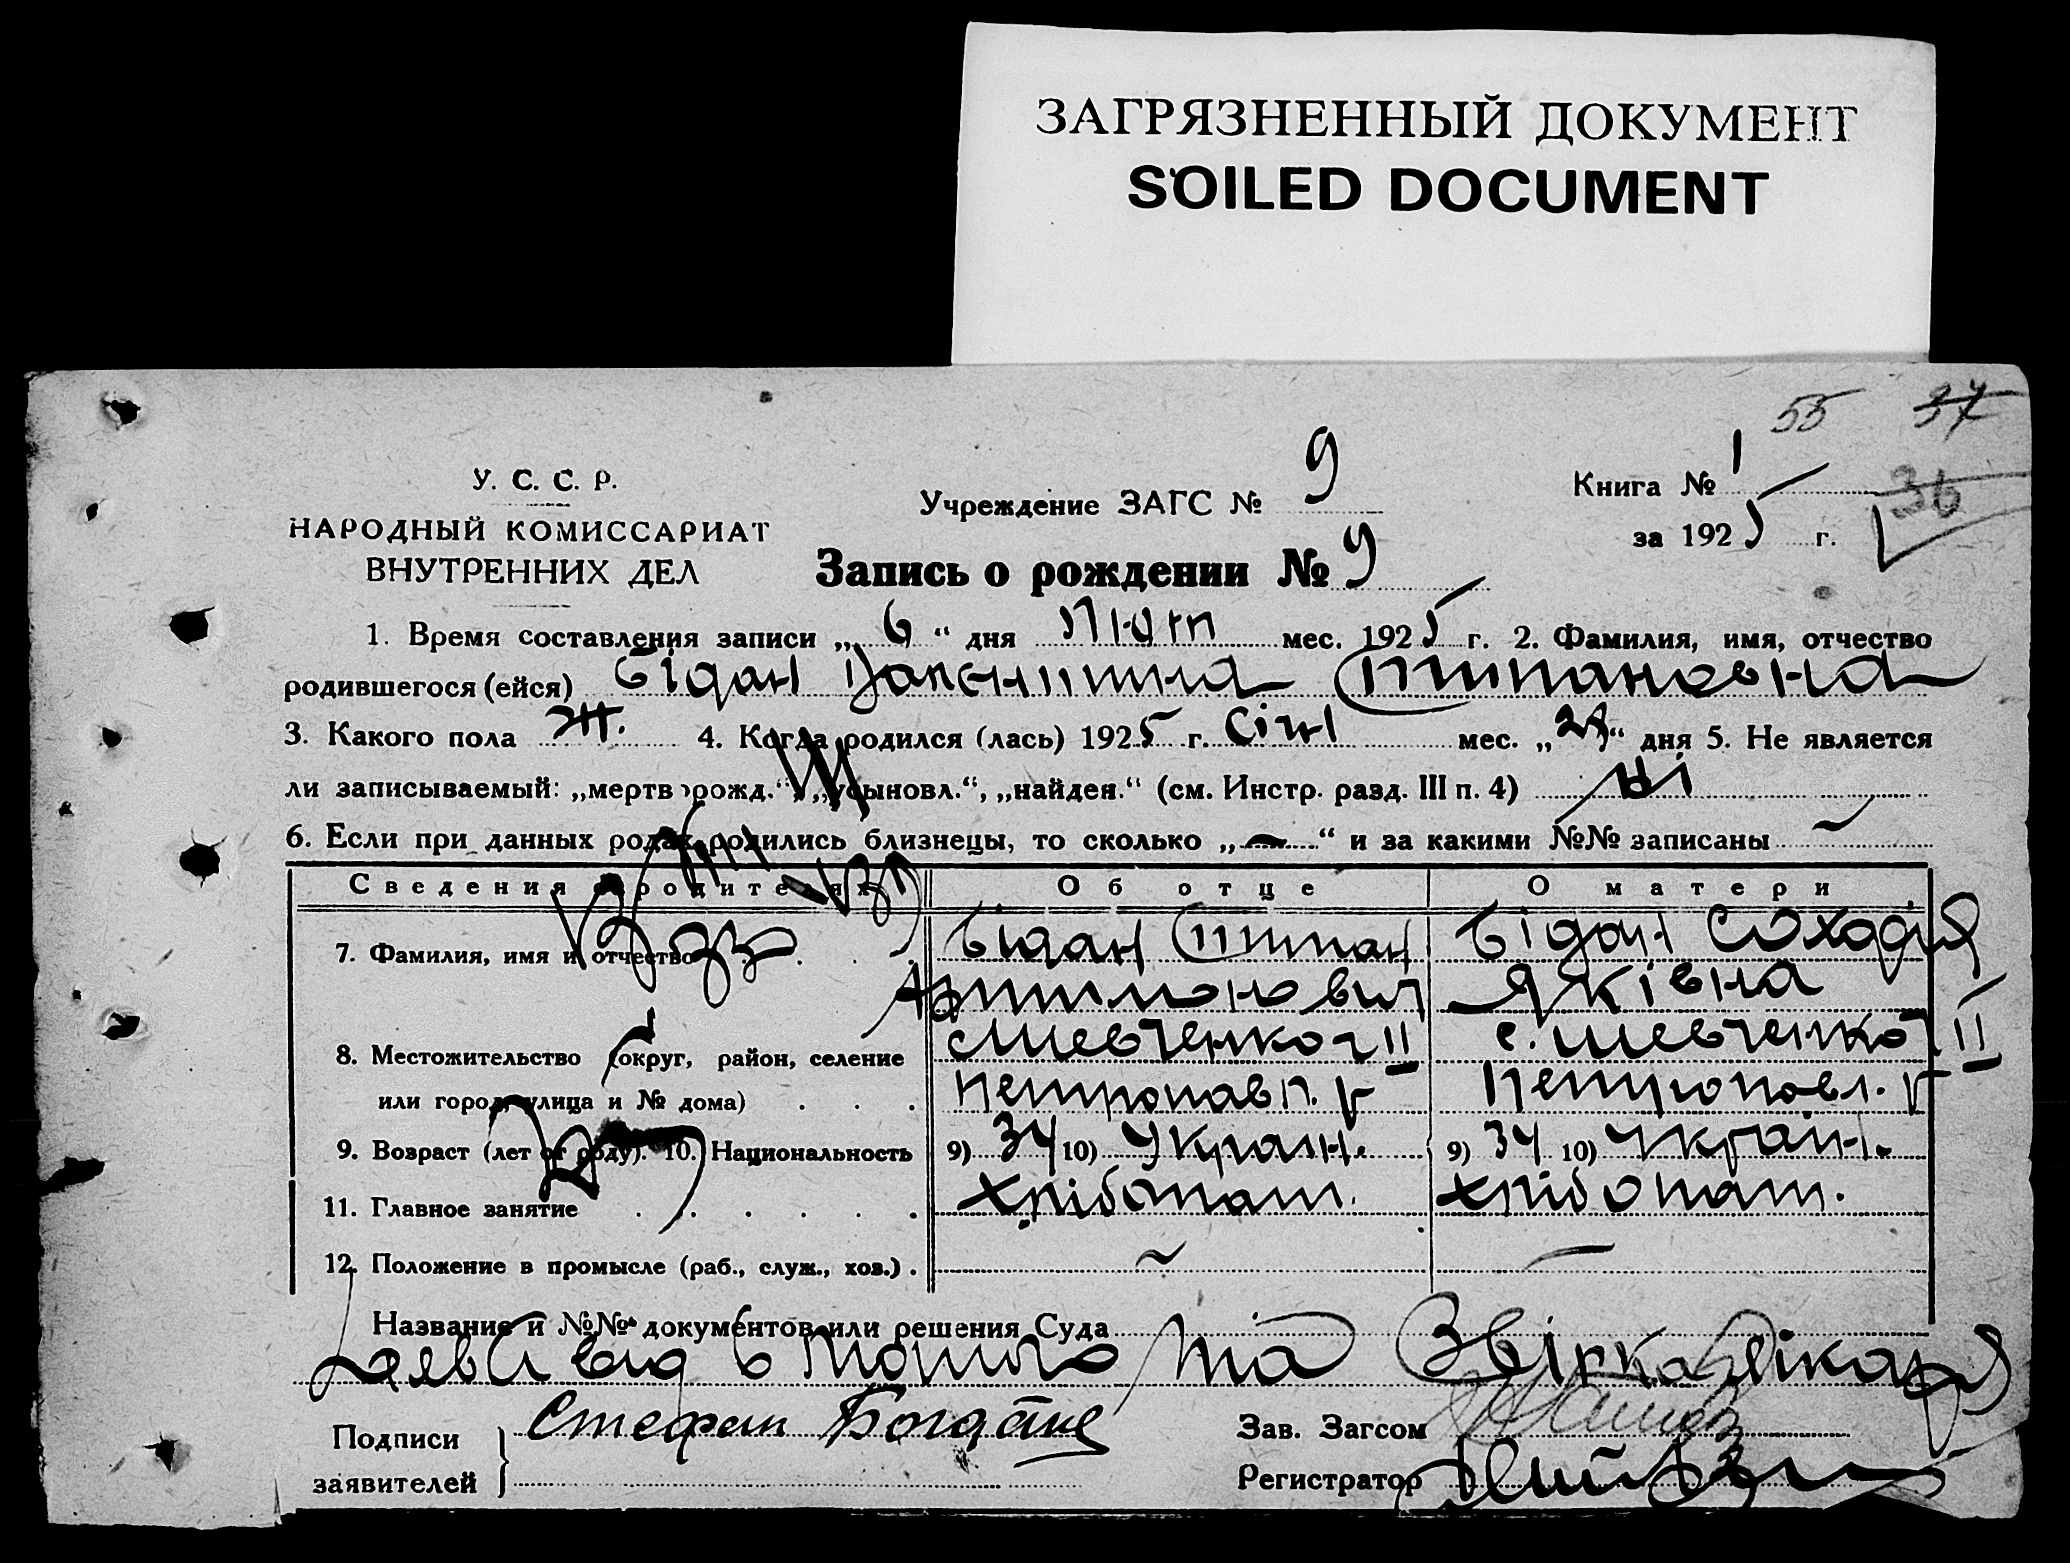 ЗАГРЯЗНЕННЫЙ ДОКУМЕНТ
SOILED DOCUMENT
55 37
36
У. С. С. Р.
НАРОДНЫЙ КОМИССАРИАТ
ВНУТРЕННИХ ДЕЛ
Учреждение ЗАГС № 9
Книга № 1
за 1925 г.
Запись о рождении № 9
1. Время составления записи „ 6 “ дня мес. 1925 г. 2. Фамилия, имя, отчество
родившегося (ейся) Бідан Валентина Степановна
3. Какого пола ж. 4. Когда родился (лась) 1925 г. Січн мес. „ “ дня 5. Не является
ли записываемый: „мертворожд.“, „усыновл.“, „найден.“ (см. Инстр. разд. III п. 4) Ні
6. Если при данных родах родились близнецы, то сколько „ — “ и за какими №№ записаны —
Сведения о родителях Об отце О матери
7. Фамилия, имя и отчество Бідан Степан Бідан
Артимонович Яківна
8. Местожительство (округ, район, селение с. Шевченко II
или город, улица и № дома) Петропавл. р Петропавл. р
9. Возраст (лет от роду). 10. Национальность 9) 34 10) Украін. 9) 34 10) Украін.
11. Главное занятие хлібопаш. хлібопаш.
12. Положение в промысле (раб., служ., хоз.) . — —
Название и №№ документов или решения Суда
та
Подписи
заявителей
Стефан
Зав. Загсом
Регистратор